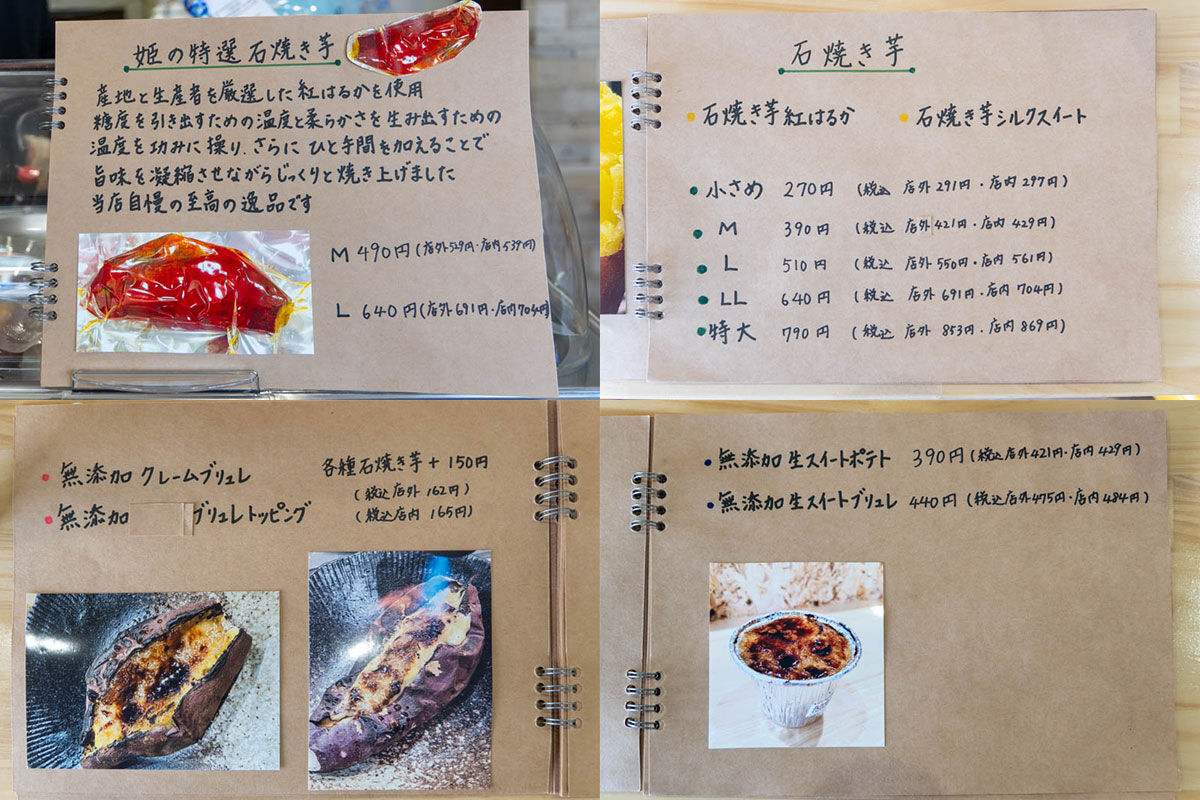 姫の特選石焼き芋
産地と生産者を厳選した紅はるかを使用
糖度を引き出すための温度と柔らかさを生み出すための
温度を巧みに操り、さらにひと手間を加えることで
旨味を凝縮させながらじっくりと焼き上げました
当店自慢の至高の逸品です
M 490円(店外529円・店内539円)
L 640円(店外691円・店内704円)
石焼き芋
石焼き芋紅はるか
石焼き芋シルクスイート
小さめ 270円 (税込 店外291円・店内297円)
M 390円 (税込 店外421円・店内429円)
L 510円 (税込 店外550円・店内561円)
LL 640円 (税込 店外691円・店内704円)
特大 790円 (税込 店外 853円・店内869円)
無添加 クレームブリュレ
無添加 ブリュレトッピング
各種石焼き芋+150円
(税込店外 162円)
(税込店内 165円)
無添加生スイートポテト 390円(税込店外421円・店内429円)
無添加生スイートブリュレ 440円 (税込店外475円・店内484円)